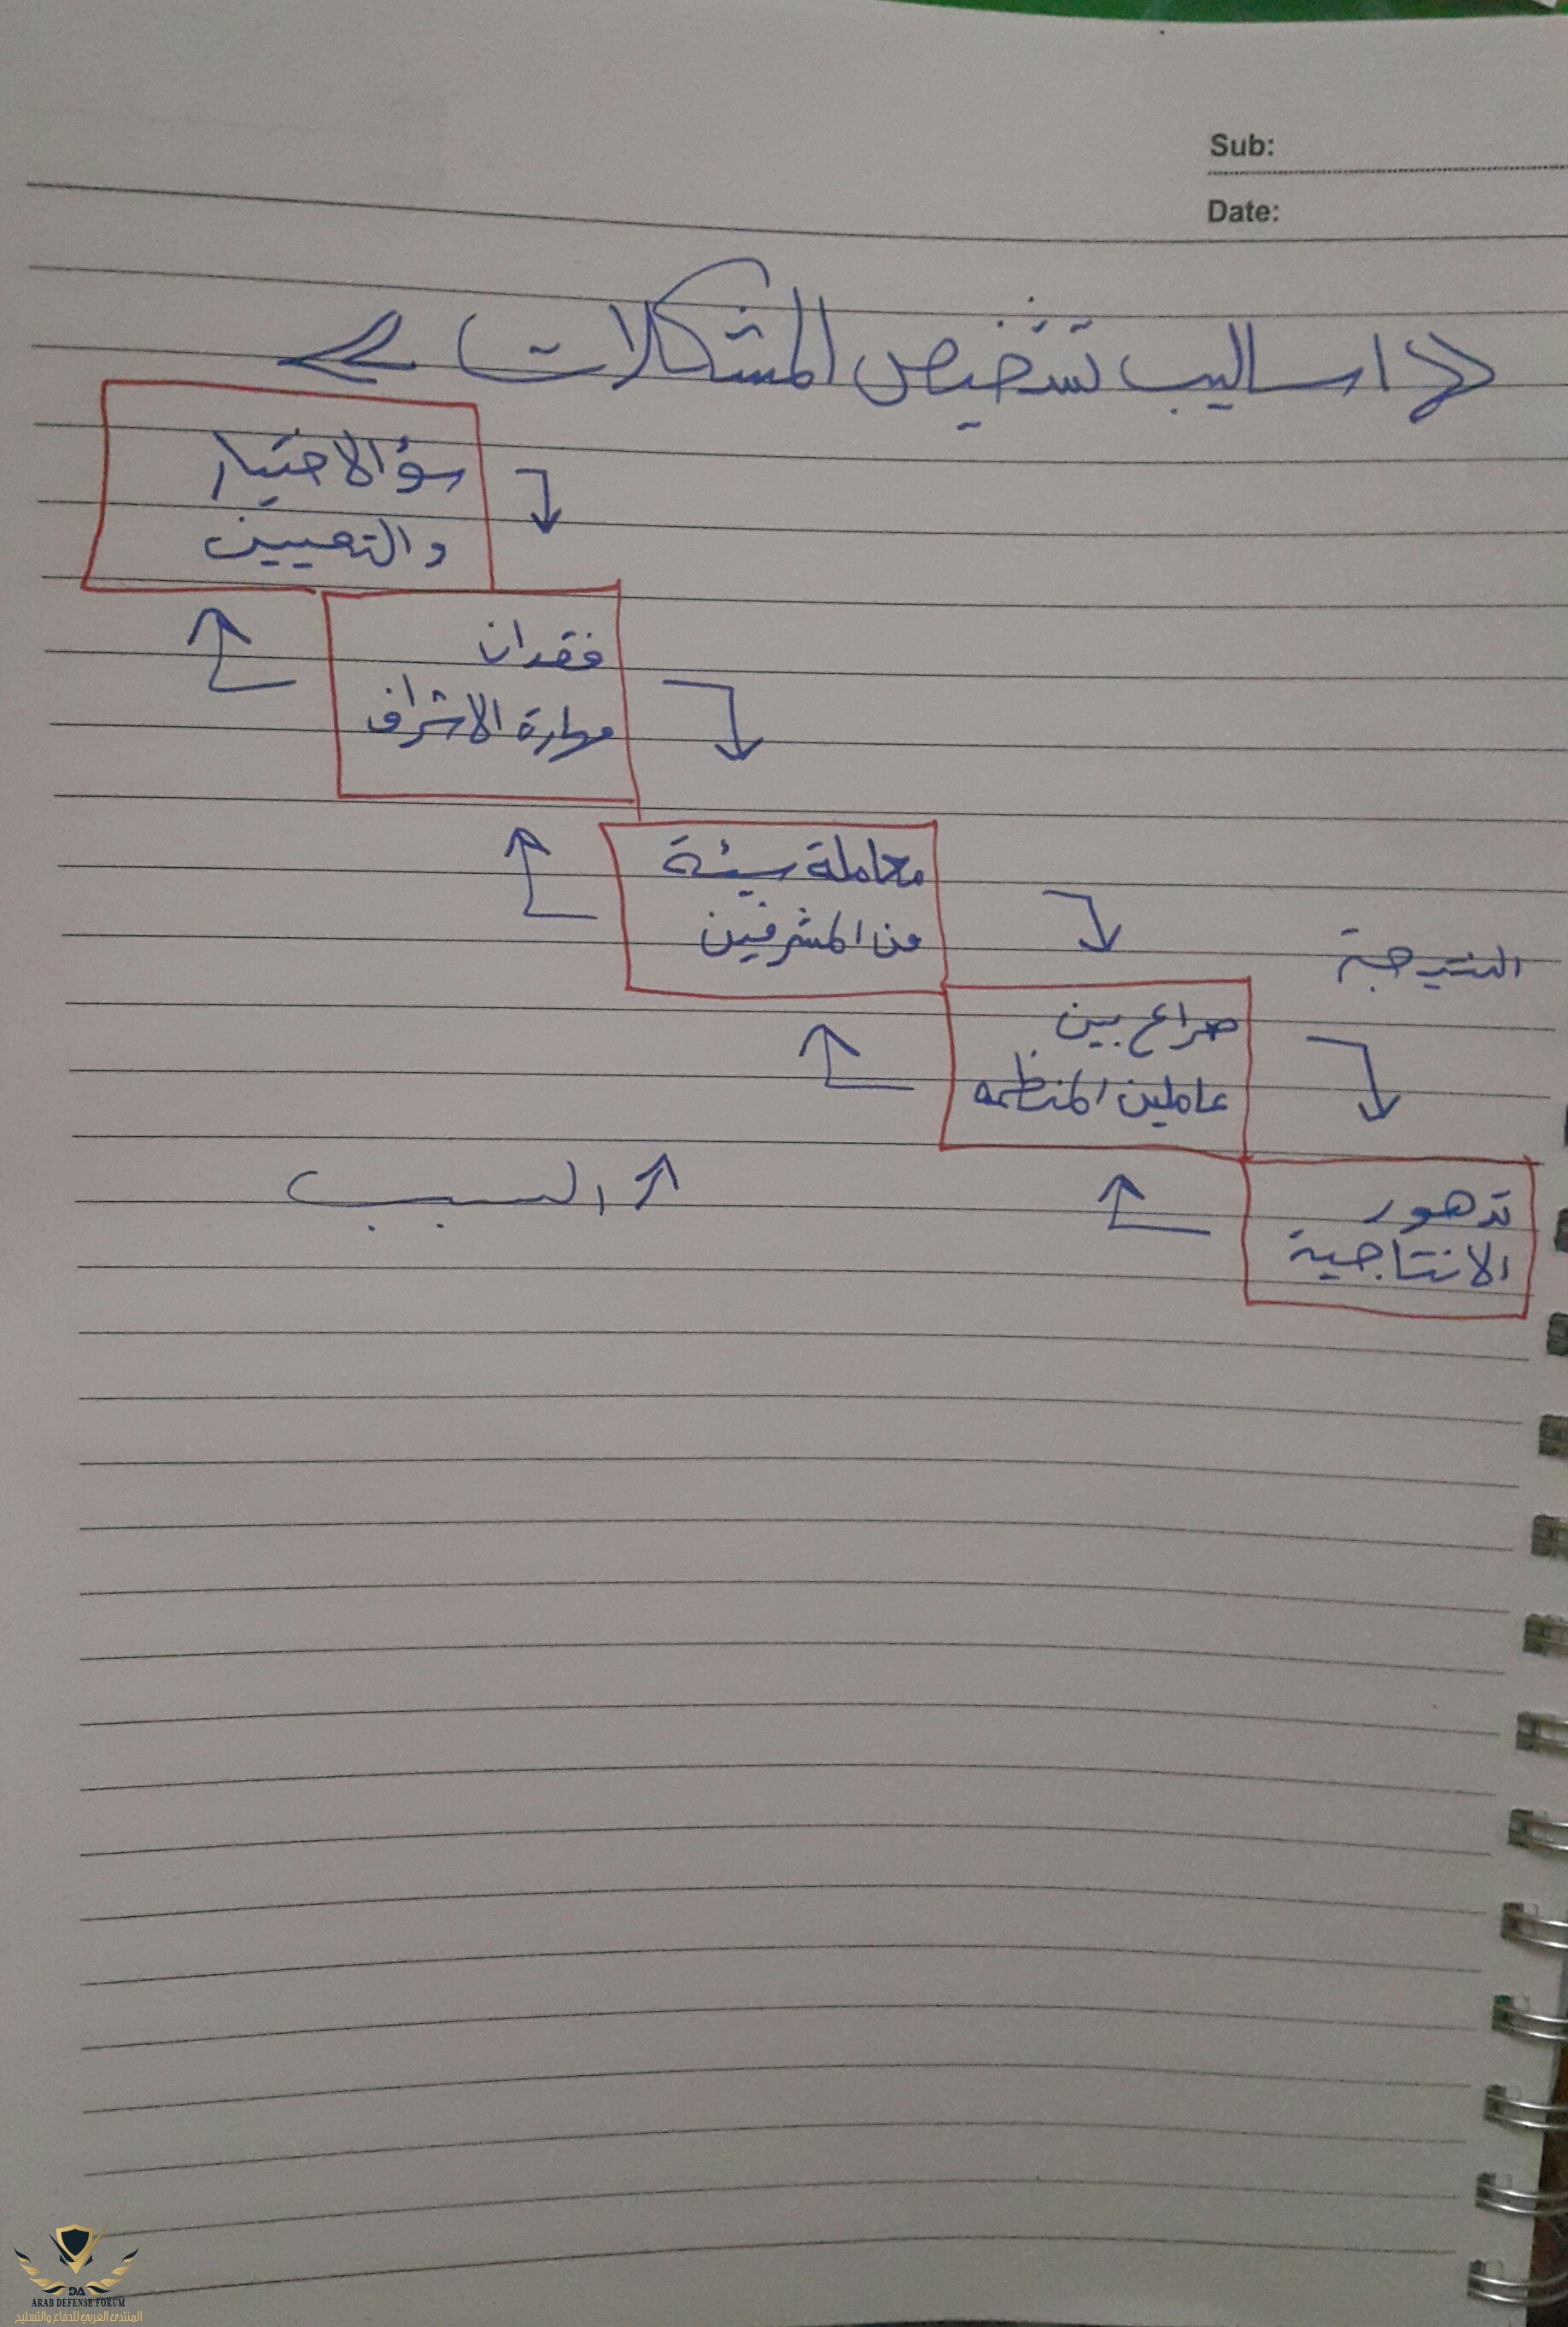 Sub:
Date:
<< اساليب تشخيص المشكلات >>
سؤ الاختيار
والتعيين
فقدان
مهارة الاشراف
معاملة سيئة
من المشرفين
النتيجة
صراع بين
عاملين المنظمه
السبب
تدهور
الانتاجية
DA
ARAB DEFENSE FORUM
المنتدى العربي للدفاع والتسليح